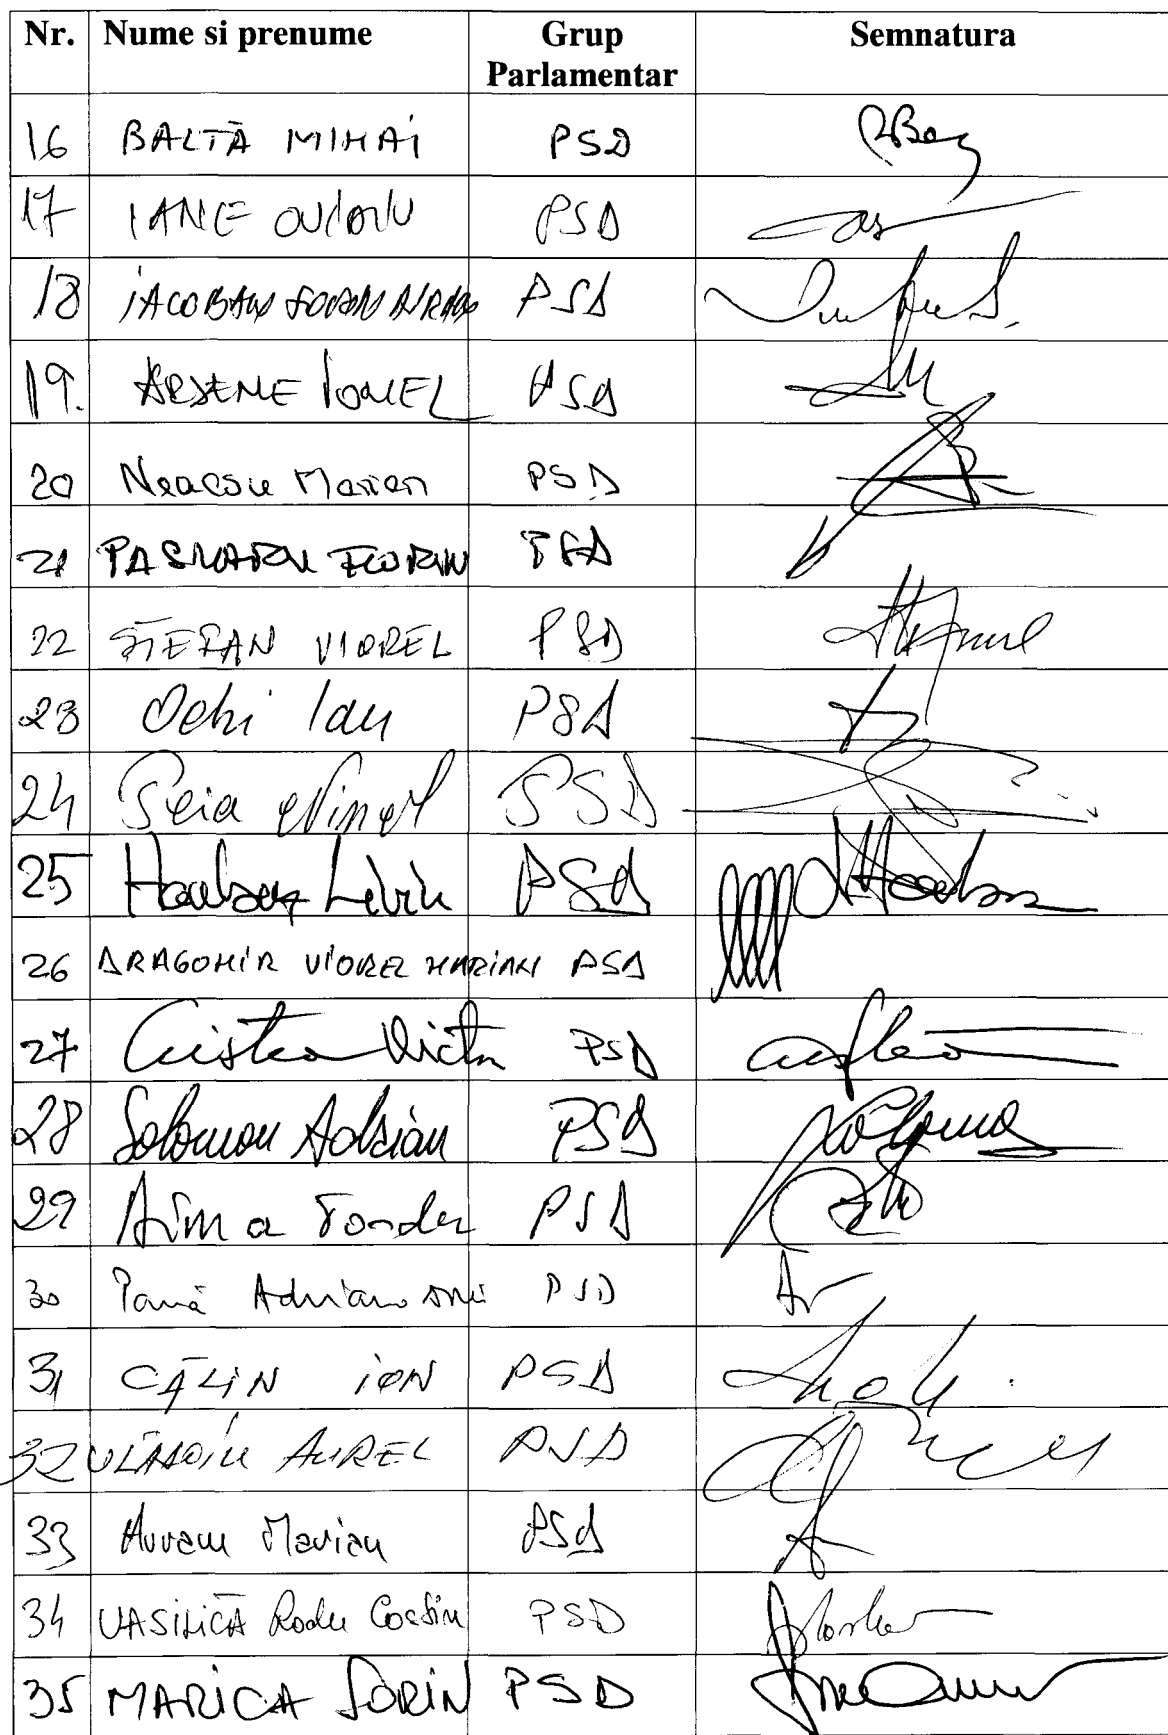 Nr. Nume si prenume Grup Parlamentar Semnatura
16 BALTĂ MIHAI PSD
17 IANE OVIDIU PSD
18 IACOBAN SORIN AVRAM PSD
19. ARSENE IONEL PSD
20 Neacsu Marian PSD
21 PASMARU FLORIN PSD
22 ȘTEFAN VIOREL PSD
23 Ochi Ion PSD
24 Peia Ninel PSD
25 Harbuz Liviu PSD
26 DRAGOMIR VIOREL MARIAN PSD
27 Cristea Victor PSD
28 Solomon Adrian PSD
29 Toader PSD
30 Pană Adriana PSD
31 CĂLIN ION PSD
32 VLĂDOIU AUREL PSD
33 Avram Marian PSD
34 VASILICĂ Radu Costin PSD
35 MARICA SORIN PSD